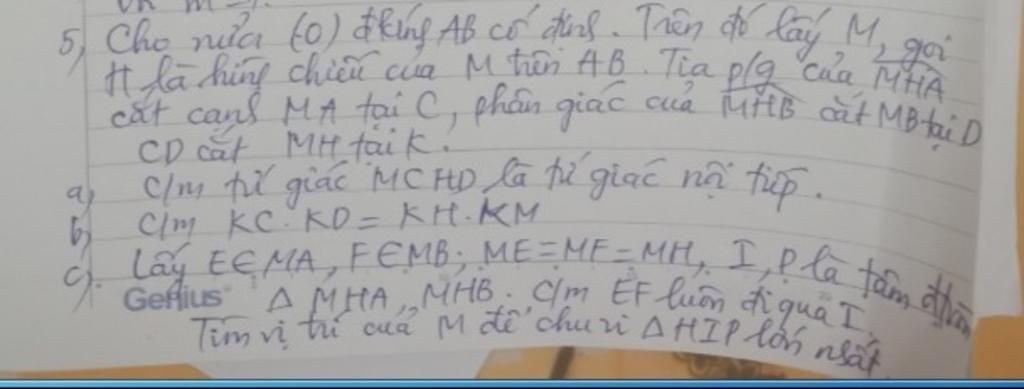 5) Cho nửa (O) đkính AB cố định. Trên đó lấy M, gọi
H là hình chiếu của M trên AB. Tia p/g của MHA
cắt cạnh MA tại C, phân giác của MHB cắt MB tại D
CD cắt MH tại K.
a) C/m tứ giác MCHD là tứ giác nội tiếp.
b) C/m KC.KD = KH.KM
c). Lấy E∈MA, F∈MB; ME=MF=MH, I, P là tâm đtròn
Genius Δ MHA, MHB. C/m EF luôn đi qua I,
Tìm vị trí của M để chu vi Δ HIP lớn nhất